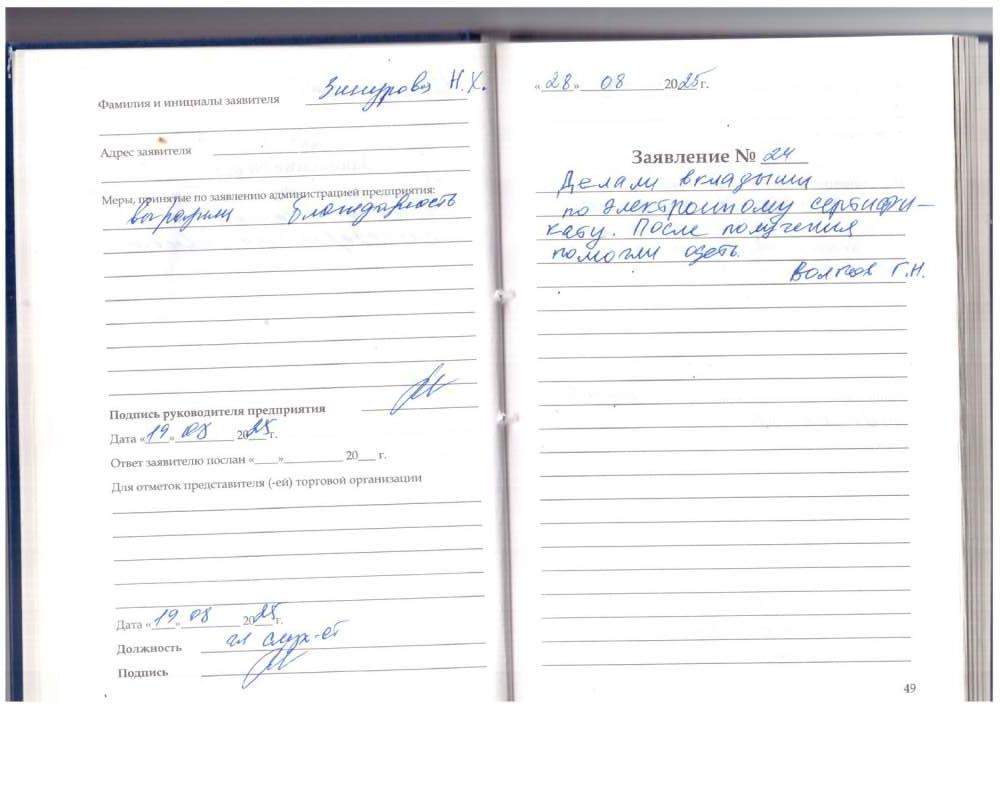 Фамилия и инициалы заявителя Зинурова Н.Х.
Адрес заявителя
Меры, принятые по заявлению администрацией предприятия:
выразили благодарность
Подпись руководителя предприятия
Дата «19» 08 2025 г.
Ответ заявителю послан «___»__________ 20___ г.
Для отметок представителя (-ей) торговой организации
Дата «19» 08 2025 г.
Должность гл слух-ст
Подпись
«28» 08 2025 г.
Заявление № 24
Делали вкладыши
по электронному сертифи-
кату. После получения
помогли одеть.
Г.Н.
49